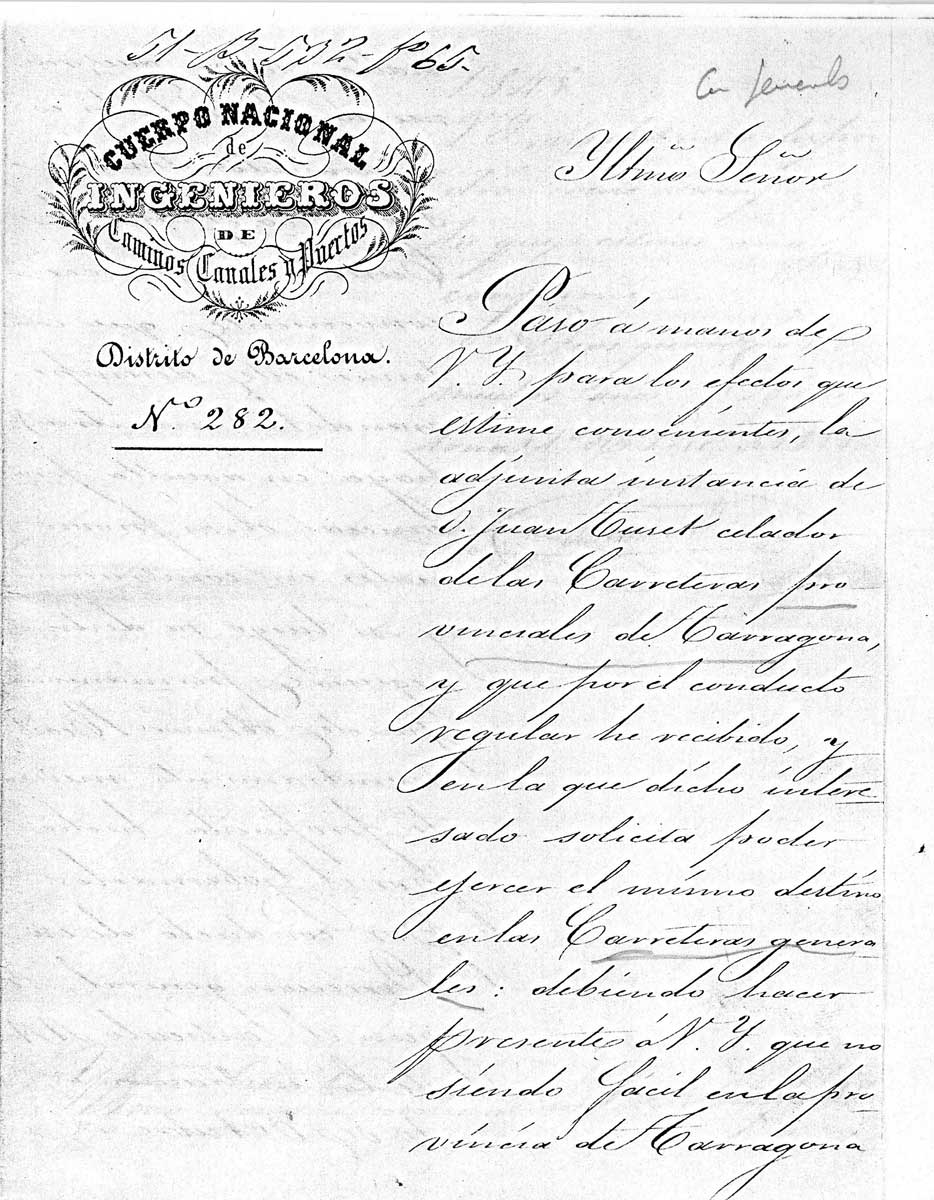 51-B-532-P 65.
CUERPO NACIONAL
de
INGENIEROS
DE
Caminos Canales y Puertos
Distrito de Barcelona.
N.º 282.
Yltmo Señor
Paso á manos de
V. Y. para los efectos que
estime convenientes, la
adjunta instancia de
D. Juan Tuset celador
de las Carreteras pro
vinciales de Tarragona,
y que por el conducto
regular he recibido, y
en la que dicho intere
sado solicita poder
ejercer el mismo destino
en las Carreteras genera
les: debiendo hacer
presente á V. Y. que no
siendo fácil en la pro
vincia de Tarragona